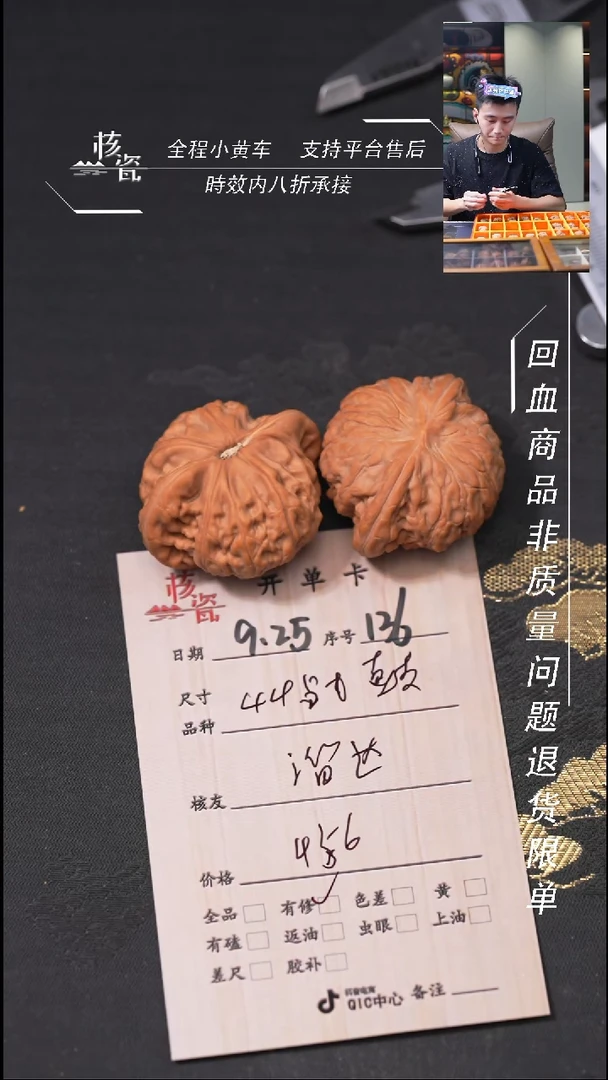 核瓷
全程小黄车 支持平台售后
時效内八折承接
回血商品非质量问题退货限单
核瓷
开单卡
日期 9.25 序号 126
尺寸 44
品种
溜达
核友
456
价格
全品 有修 色差 黄
有磕 返油 虫眼 上油
差尺 胶补
抖音电商
QIC中心 备注